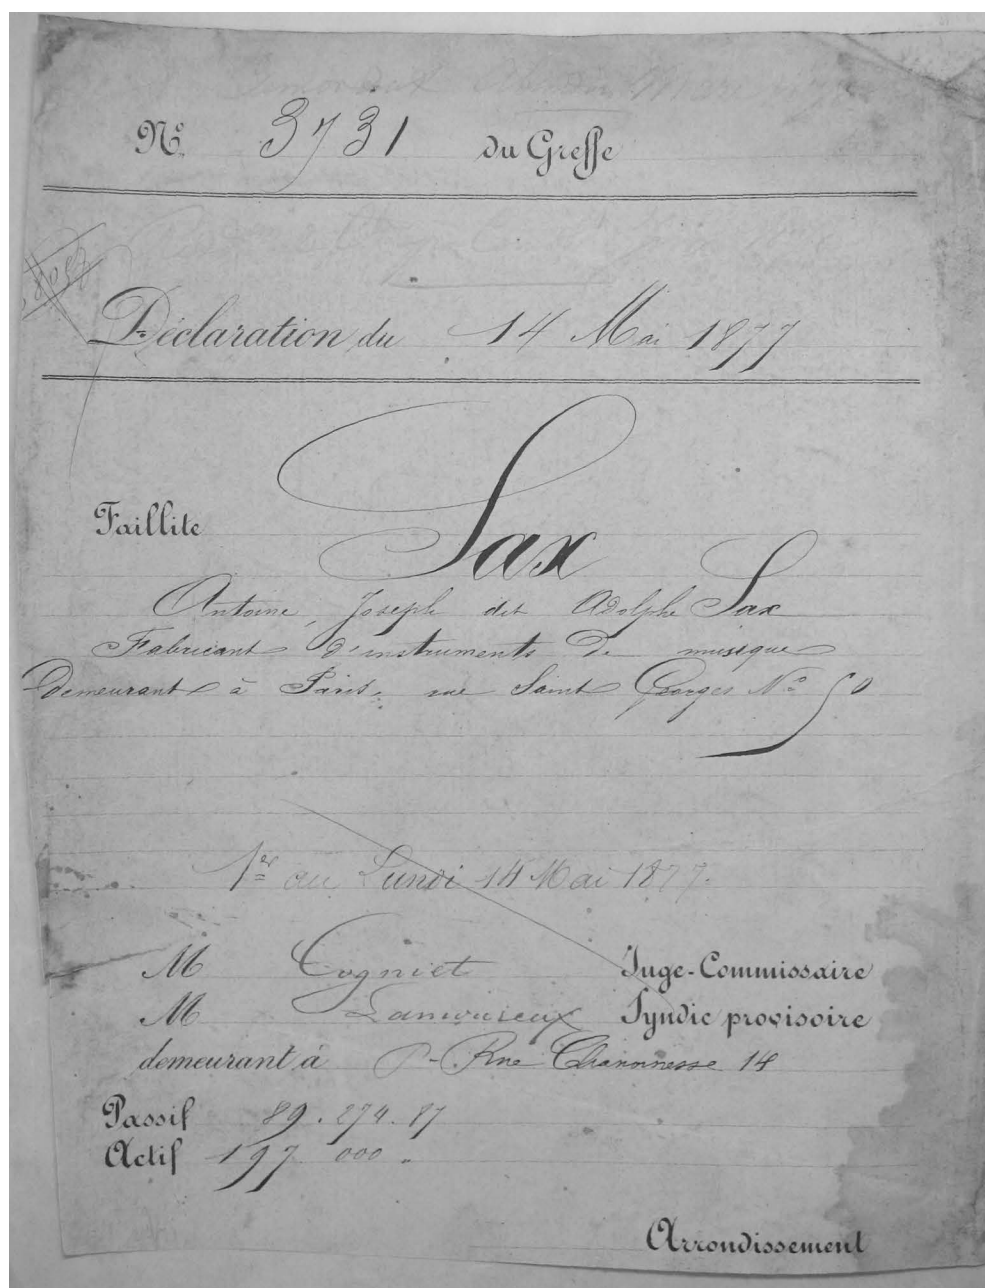 Nº 3731 du Greffe
Déclaration du 14 Mai 1877
Faillite Sax
Antoine, Joseph dit Adolphe Sax
Fabricant d'instruments de musique
Demeurant à Paris, rue Saint Georges Nº 50
1er au Lundi 14 Mai 1877.
M Cogniet Juge-Commissaire
M Lamoureux Syndic provisoire
demeurant à Rue Chanoinesse 14
Passif 89.274.87
Actif 197 000.
Arrondissement